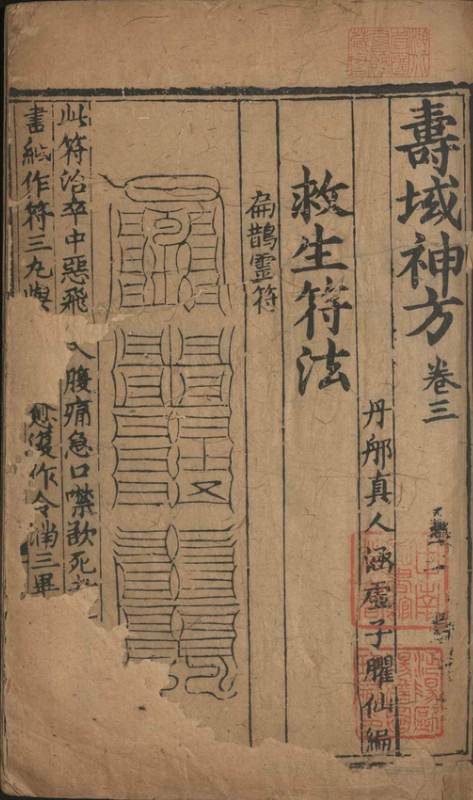 壽域神方 卷三
丹邱真人涵虛子臞仙編
救生符法
扁鵲靈符
此符治卒中惡飛 腹痛急口噤欲死
書紙作符三丸 愈復作令満三畢